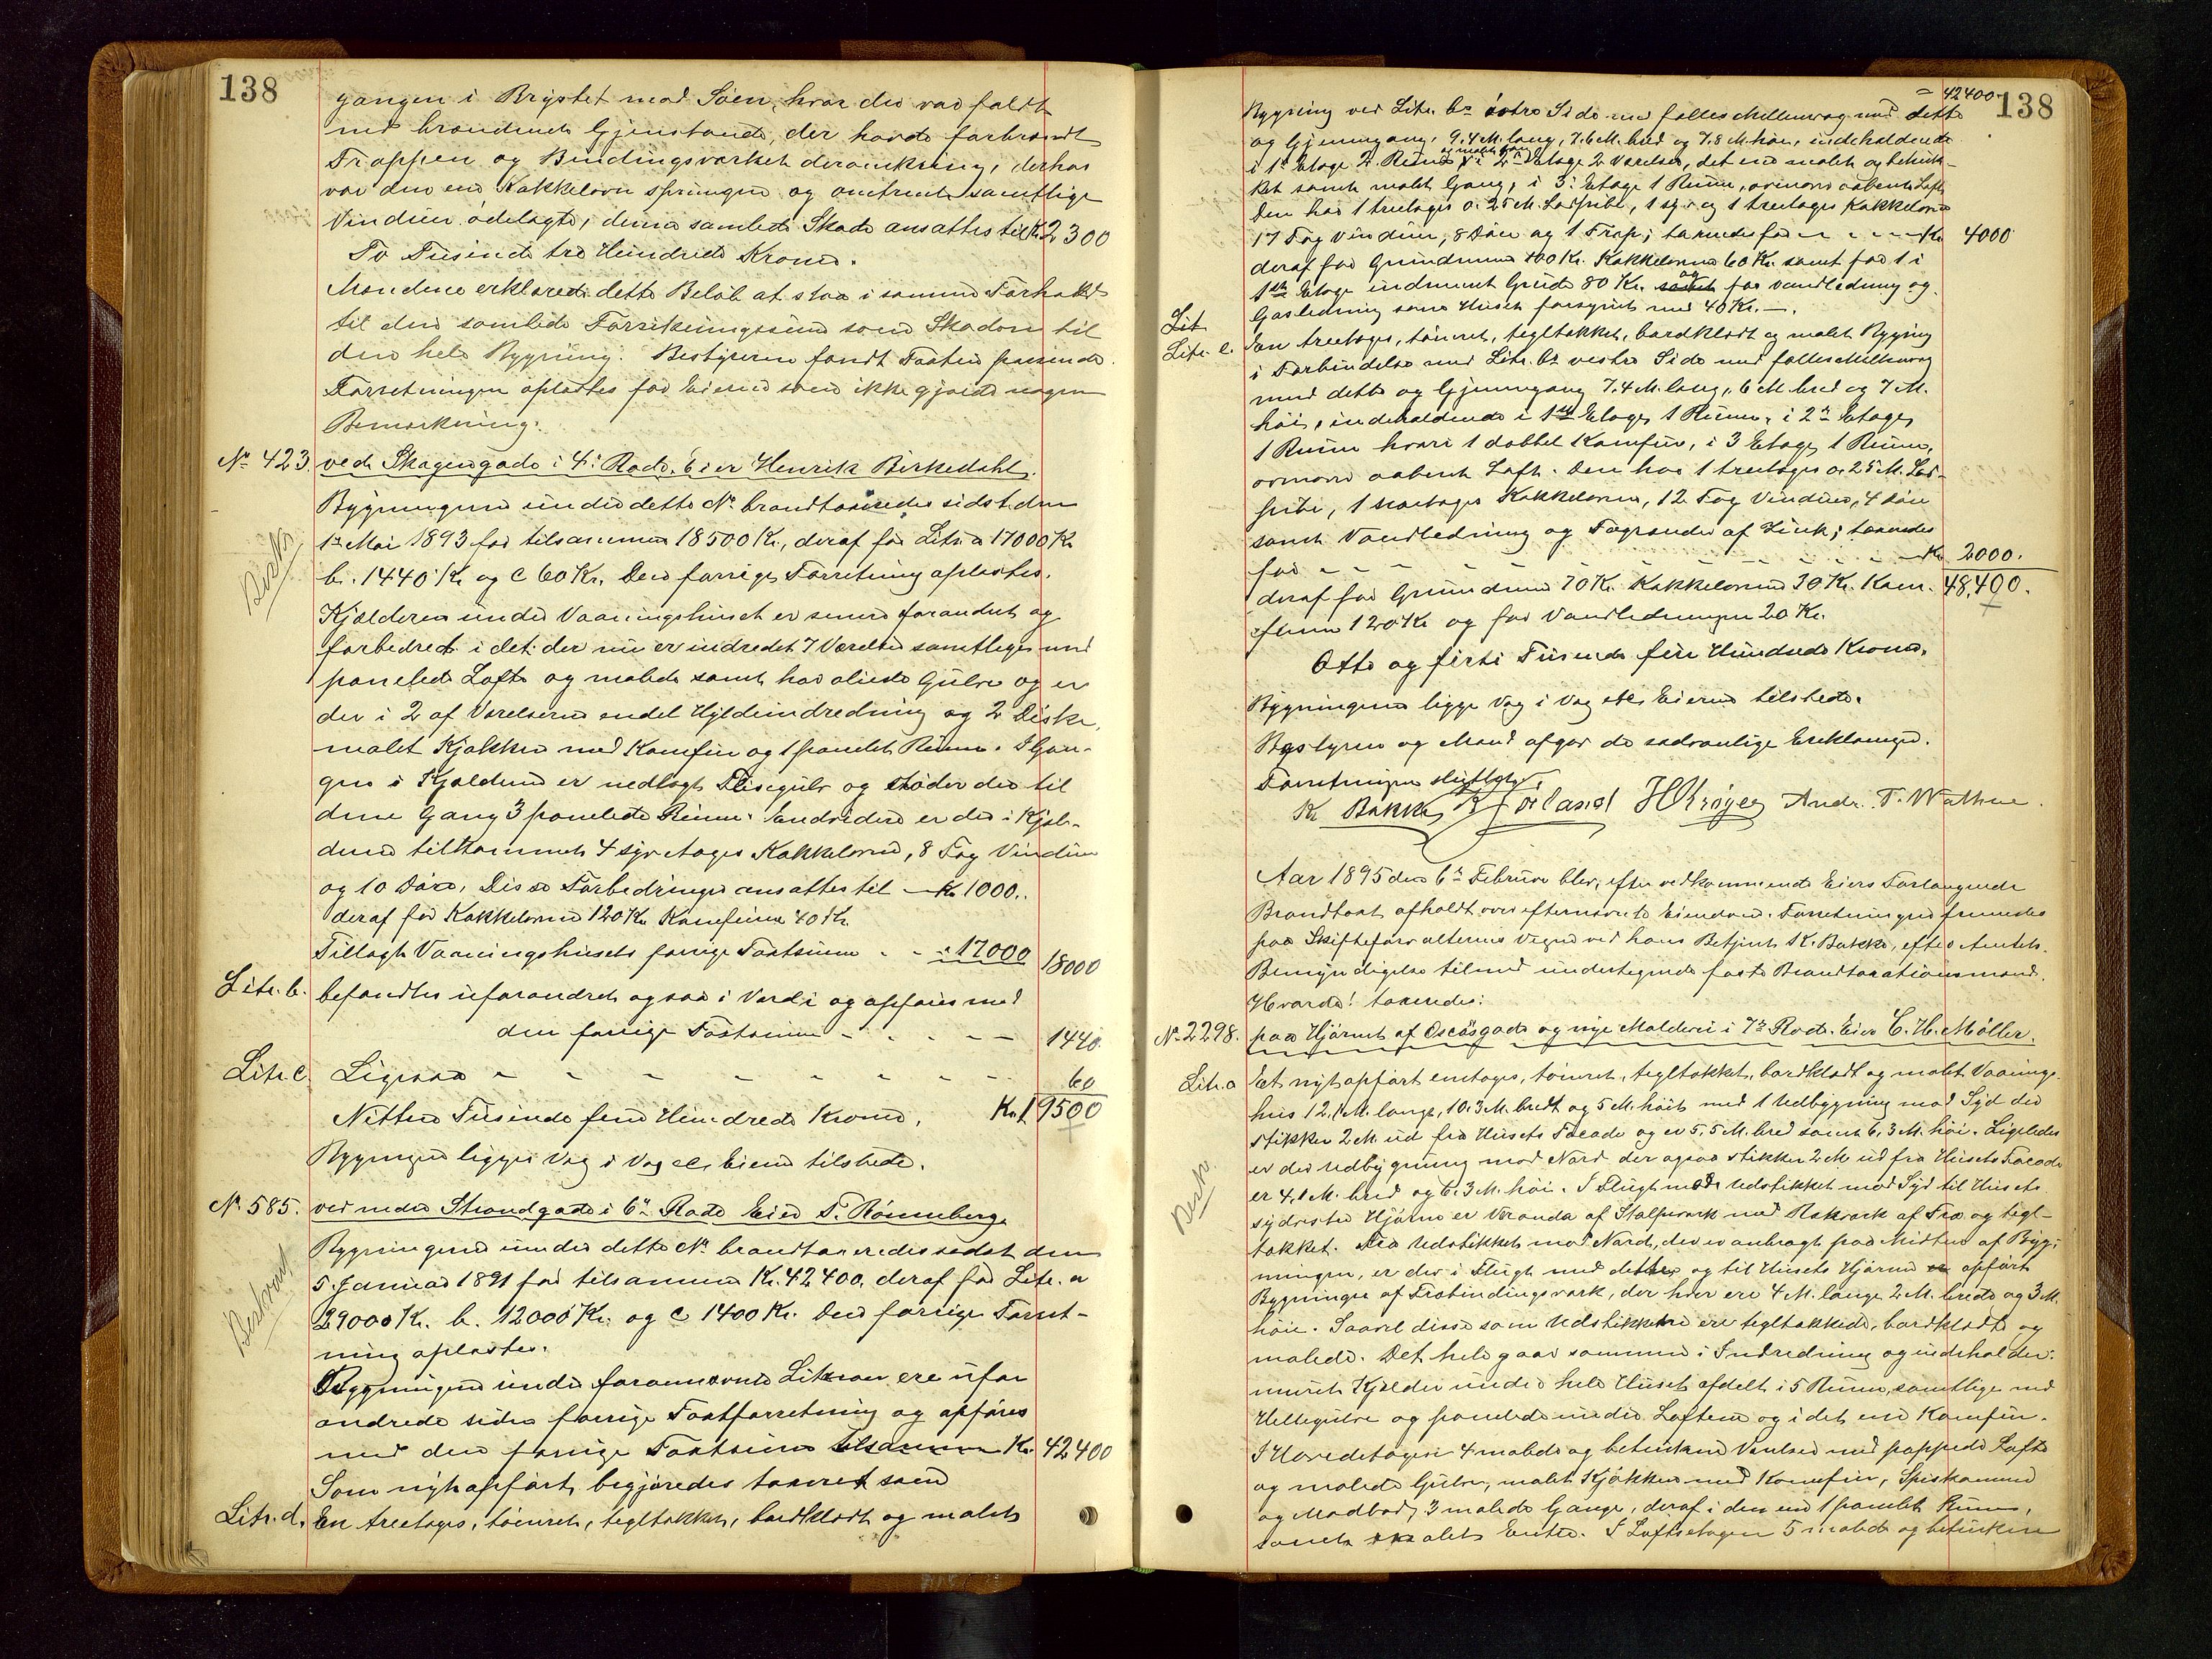 138
gangen i Brystet mod Søen, hvor der var faldt
ned brændende Gjenstande, der havde forbrændt
Trappen og Bindingsværket deromkring, derhos
var der een Kakkelovn sprungen og omtrent samtlige
Vinduer ødelagte, denne samlede Skade ansattes til Kr 2300
To Tusinde tre Hundrede Kroner.
Mændene erklærede dette Beløb at staa i samme Forhold
til den samlede Forsikringssum som Skaden til
den hele Bygning. Bestyreren fandt Taxten passende.
Forretningen oplæstes for Eieren som ikke gjorde nogen
Bemærkning.
No 423. ved Skagengade i 4de Rode. Eier Henrik Birkedahl.
Bygningerne under dette No brandtaxeredes sidst den
1ste Mai 1893 for tilsammen 18500 Kr., deraf for Litr. a 17000 Kr
b. 1440 Kr og c 60 Kr. Den forrige Forretning oplæstes.
Kjælderen under Vaaningshuset er senere forandret og
forbedret i det der nu er indredet 7 Værelser samtlige med
panelede Lofte og malede samt har oliede Gulve og er
der i 2 af Værelserne endel Hyldeindredning og 2 Diske,
malet Kjøkken med Komfur og 1 panelet Rum. I Gan-
gen i Kjælderen er nedlagt Flisegulv og støder der til
denne Gang 3 panelede Rum. Endvidere er der i Kjæl-
deren tilsammen 4 syv etages Kakkelovne, 8 Fag Vinduer
og 10 Døre, Disse Forbedringer ansattes til — Kr 1000.
deraf for Kakkelovne 120 Kr Komfuren 40 Kr.
Tillagt Vaaningshusets forrige Taxtsum - - " 17000 18000
Litr. b. befandtes uforandret ogsaa i Værdi og opføres med
den forrige Taxtsum - - - - - 1440.
Litr. c. Ligesaa - - - - - - - 60
Nitten Tusinde fem Hundrede Kroner. Kr. 19500
Bygningen ligger Væg i Væg etc. Eieren tilstede.
No 585. ved nedre Strandgade i 6te Rode Eier T. Rönneberg
Bygningerne under dette No brandtaxeredes sidst den
5. Januar 1891 for tilsammen Kr. 42400, deraf for Litr. a
29000 Kr. b. 12000 Kr. og c 1400 Kr. Den forrige Forret-
ning oplæstes.
Bygningerne under forannævnte Litraer ere ufor
andrede siden forrige Taxtforretning og opføres
med den forrige Taxtsum tilsammen Kr. 42400
Som nyt opført, begjæredes taxeret som
Litr. d. En treetages, tømret, tegltækket, bordklædt og malet
138
= 42400
Bygning ved Litr. bs østre Side med fælles Skillevæg med dette
og Gjennemgang, 9.4 M. lang, 7.6 M. bred og 7.8 M. høi, indeholdende
i 1ste Etage 2 Rum og malet Gang i 2den Etage 2 Værelser, det ene malet og betræk-
ket samt malet Gang, i 3. Etage 1 Rum, ovenover aabent Loft.
Den har 1 treetages o. 25 M. Ladpibe, 1 syv og 1 treetages Kakkelovn
17 Fag Vinduer, 8 Døre og 1 Trap; taxeredes for - - - - Kr 4000
deraf for Grundmur 100 Kr. Kakkelovne 60 Kr. samt for 1 i
1ste Etage indmuret Gryde 80 Kr. og for Vandledning og
Gasledning som Huset forsynet med 40 Kr. —
Lit
Litr. e. En treetages, tømret, tegltækket, bordklædt og malet Bygning
i Forbindelse med Litr. bs vestre Side med fælles Skillevæg
med dette og Gjennemgang 7.4 M. lang, 6 M. bred og 7 M.
høi, indeholdende i 1ste Etage 1 Rum, i 2den Etage
1 Rum hvori 1 dobbel Komfur, i 3 Etage 1 Rum,
ovenover aabent Loft. Den har 1 treetages o. 25 M. Lad-
pibe, 1 toetages Kakkelovn, 12 Fag Vinduer, 4 Døre
samt Vandledning og Tagrender af Zink; taxeredes
for - - - - - - - - - Kr 2000.
deraf for Grundmur 70 Kr. Kakkelovn 30 Kr. Kom- 48,400.
furen 120 Kr og for Vandledningen 20 Kr.
Otte og firti Tusinde fire Hundrede Kroner.
Bygningerne ligge Væg i Væg etc Eieren tilstede.
Bestyrer og Mænd afgav de sædvanlige Erklæringer.
Forretningen sluttet.
K. Bakke K. Førland H Krøger Andr. T. Wathne.
Aar 1895 den 6te Februar blev, efter vedkommende Eiers Forlangende
Brandtaxt afholdt over efternævnte Eiendom. Forretningen fremmedes
paa Skifteforvalterens Vegne ved hans Betjent K. Bakke, efter Amtets
Bemyndigelse tilmed undertegnede faste Brandtaxationsmænd.
Hvorda! taxeredes:
No 2298. paa Hjørnet af Oscarsgade og nye Maldevei i 7de Rode. Eier C. H. Møller.
Litr. a Et nyt opført eenetages, tømret, tegltækket, bordklædt og malet Vaanings-
hus 12.1 M. langt, 10.3 M. bredt og 5 M. høit med 1 Udbygning mod Syd der
stikker 2 M. ud fra Husets Facade og er 5.5 M. bred samt 6.3 M. høi. Ligeledes
er der Udbygning mod Nord der ogsaa stikker 2 M ud fra Husets Facade
er 4.1 M. bred og 6.3 M. høi. I Flugt med Udstikket mod Syd til Husets
sydvestre Hjørne er Veranda af Stolpeværk med Rækværk af Træ og tegl-
tækket. Fra Udstikket mod Nord, der er anbragt paa Midten af Byg-
ningen, er der i Flugt med dette og til Husets Hjørner opført
Bygninger af Træbindingsværk, der hver ere 4 M. lange 2 M. brede og 3 M.
høie. Saavel disse som Udstikkene ere tegltækkede, bordklædte og
malede. Det hele gaar sammen i Indredning og indeholder:
muret Kjælder under hele Huset afdelt i 5 Rum, samtlige med
Hellegulve og panelede under Loftene og i det ene Komfur.
I Hovedetagen 4 malede og betrukne Værelser med pappede Lofte
og malede Gulve, malet Kjøkken med Komfur, Spiskammer
og Madbod, 3 malede Gange, deraf i den ene 1 panelet Rum,
samt malet Entre. I Loftsetagen 5 malede og betrukne
Beskr.
Beskrevet
Beskr.